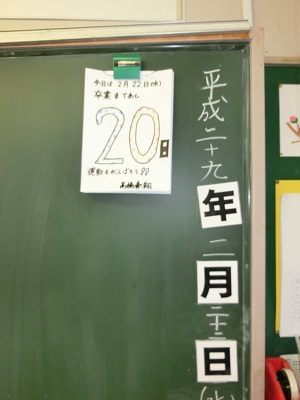 今日は2月22日(水)
卒業まであと
20日
運動をがんばろう!!
平成二十九年二月二十二日(水)